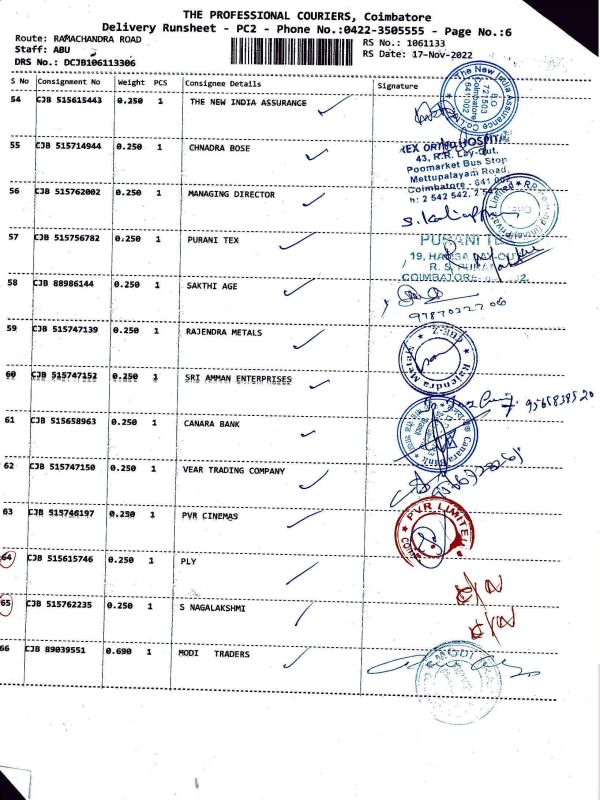 THE PROFESSIONAL COURIERS, Coimbatore
Delivery Runsheet - PC2 - Phone No.:0422-3505555 - Page No.:6
Route: RAMACHANDRA ROAD
RS No.: 1061133
Staff: ABU
RS Date: 17-Nov-2022
DRS No.: DCJB106113306
S No Consignment No Weight PCS Consignee Details Signature
54 CJB 515615443 0.250 1 THE NEW INDIA ASSURANCE
The New India Assurance Co.
B.O
Coimbatore
641002
55 CJB 515714944 0.250 1 CHNADRA BOSE
REX ORTHO HOSPITAL
43, R.R. Lay-Out,
Poomarket Bus Stop
Mettupalayam Road,
Coimbatore - 641 002
56 CJB 515762002 0.250 1 MANAGING DIRECTOR
57 CJB 515756782 0.250 1 PURANI TEX
PURANI TEX
COIMBATORE
58 CJB 88986144 0.250 1 SAKTHI AGE
59 CJB 515747139 0.250 1 RAJENDRA METALS
Rajendra
60 CJB 515747152 0.250 1 SRI AMMAN ENTERPRISES
61 CJB 515658963 0.250 1 CANARA BANK
Canara Bank
62 CJB 515747150 0.250 1 VEAR TRADING COMPANY
63 CJB 515746197 0.250 1 PVR CINEMAS
PVR LIMITED
64 CJB 515615746 0.250 1 PLY
65 CJB 515762235 0.250 1 S NAGALAKSHMI
66 CJB 89039551 0.690 1 MODI TRADERS
MODI